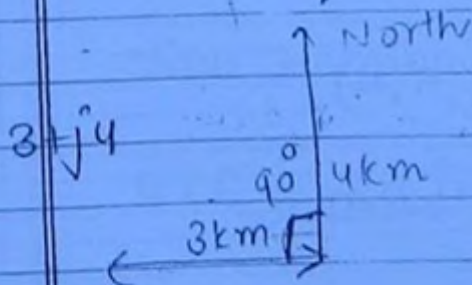 North
3+j4
90° 4km
3km